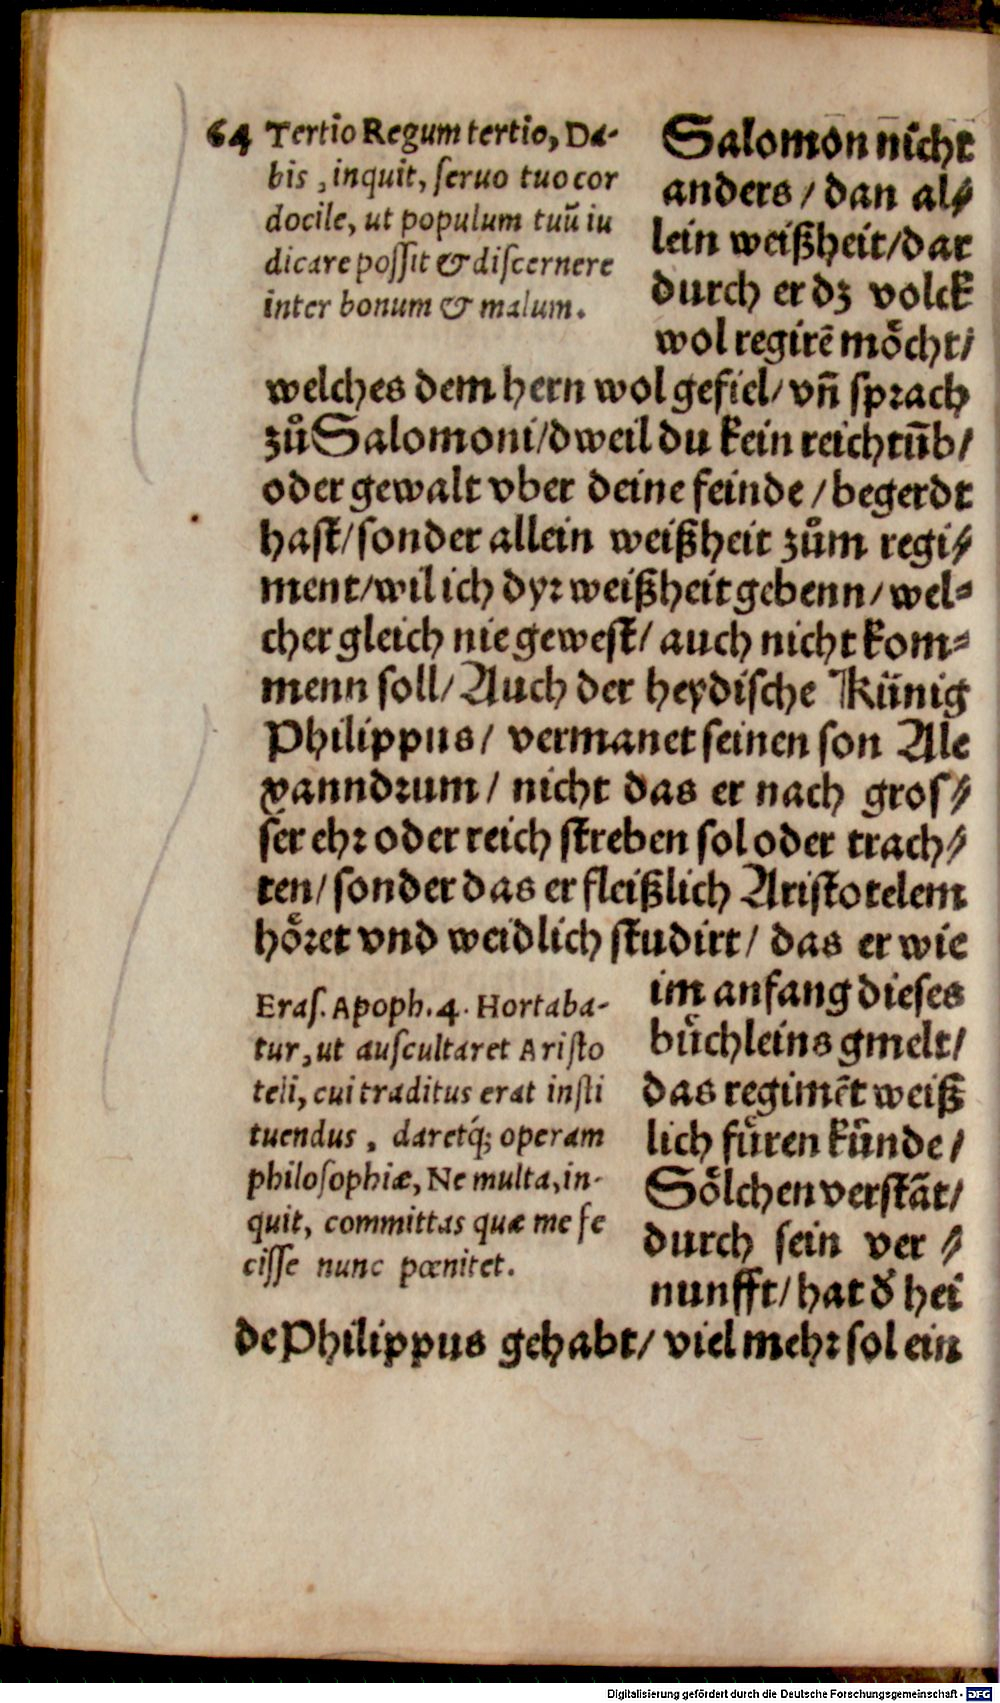 64 Tertio Regum tertio, Da-
bis, inquit, seruo tuo cor
docile, ut populum tuũ iu
dicare possit & discernere
inter bonum & malum.
Salomon nicht
anders / dan al⸗
lein weißheit/dar
durch er dz volck
wol regirẽ moͤcht/
welches dem hern wol gefiel/ vñ sprach
zů Salomoni/dweil du kein reichtũb/
oder gewalt vber deine feinde / begerdt
hast/sonder allein weißheit zům regi⸗
ment/wil ich dyr weißheit gebenn/ wel⸗
cher gleich nie gewest/ auch nicht kom⸗
menn soll/ Auch der heydische Künig
Philippus/ vermanet seinen son Ale
xanndrum/ nicht das er nach gros⸗
ser ehr oder reich streben sol oder trach⸗
ten/ sonder das er fleißlich Aristotelem
hoͤret vnd weidlich studirt/ das er wie
Eras. Apoph. 4. Hortaba-
tur, ut auscultaret Aristo
teli, cui traditus erat insti
tuendus, daretq́; operam
philosophiæ, Ne multa, in-
quit, committas quæ me fe
cisse nunc pœnitet.
im anfang dieses
buͤchleins gmelt/
das regimẽt weiß
lich fuͤren kuͤnde/
Soͤlchen verstãt/
durch sein ver⸗
nunfft/ hat d̕ hei
de Philippus gehabt/ viel mehr sol ein
Digitalisierung gefördert durch die Deutsche Forschungsgemeinschaft - DFG